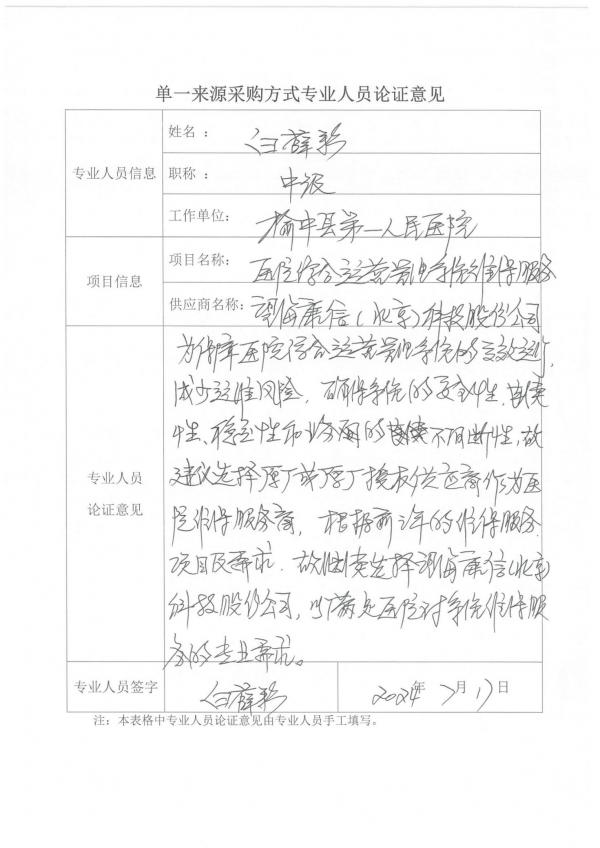 单一来源采购方式专业人员论证意见
专业人员信息
姓名：
白薛彩
职称：
中级
工作单位：
榆中县第一人民医院
项目信息
项目名称：
医院综合运营 系统维保服务
供应商名称：
望海康信（北京）科技股份公司
专业人员
论证意见
为保障医院综合运营 系统的 运行，
减少运维风险，确保系统的安全性、
性、稳定性和业务 的 不间断性，故
建议选择原厂或原厂授权供应商作为医
院维保服务商，根据前 年的维保服务
项目及需求，故 选择望海康信（北京）
科技股份公司，以满足医院对系统维保服
务的专业需求。
专业人员签字
白薛彩
2024年7月17日
注：本表格中专业人员论证意见由专业人员手工填写。